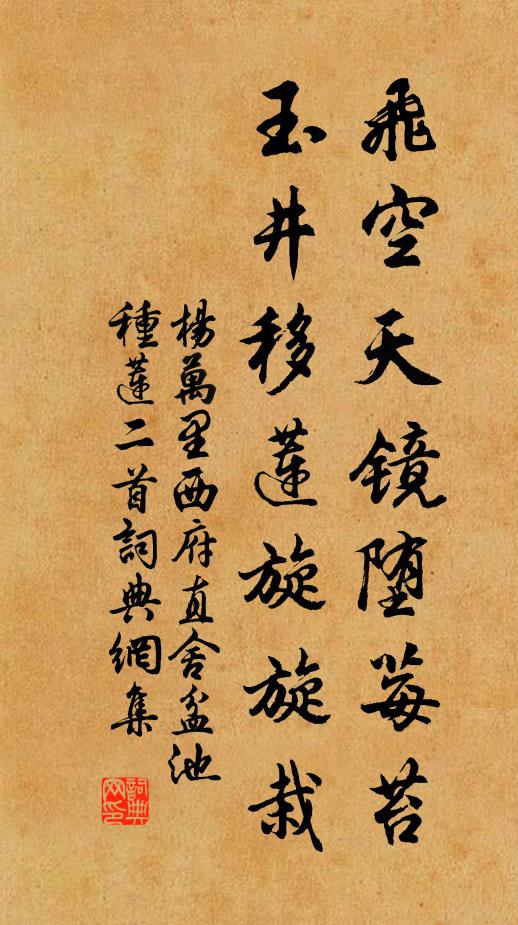 飛空天镜堕莓苔
玉井移莲旋旋栽
楊萬里西府直舍盆池
種蓮二首詞典網集
詞典网印